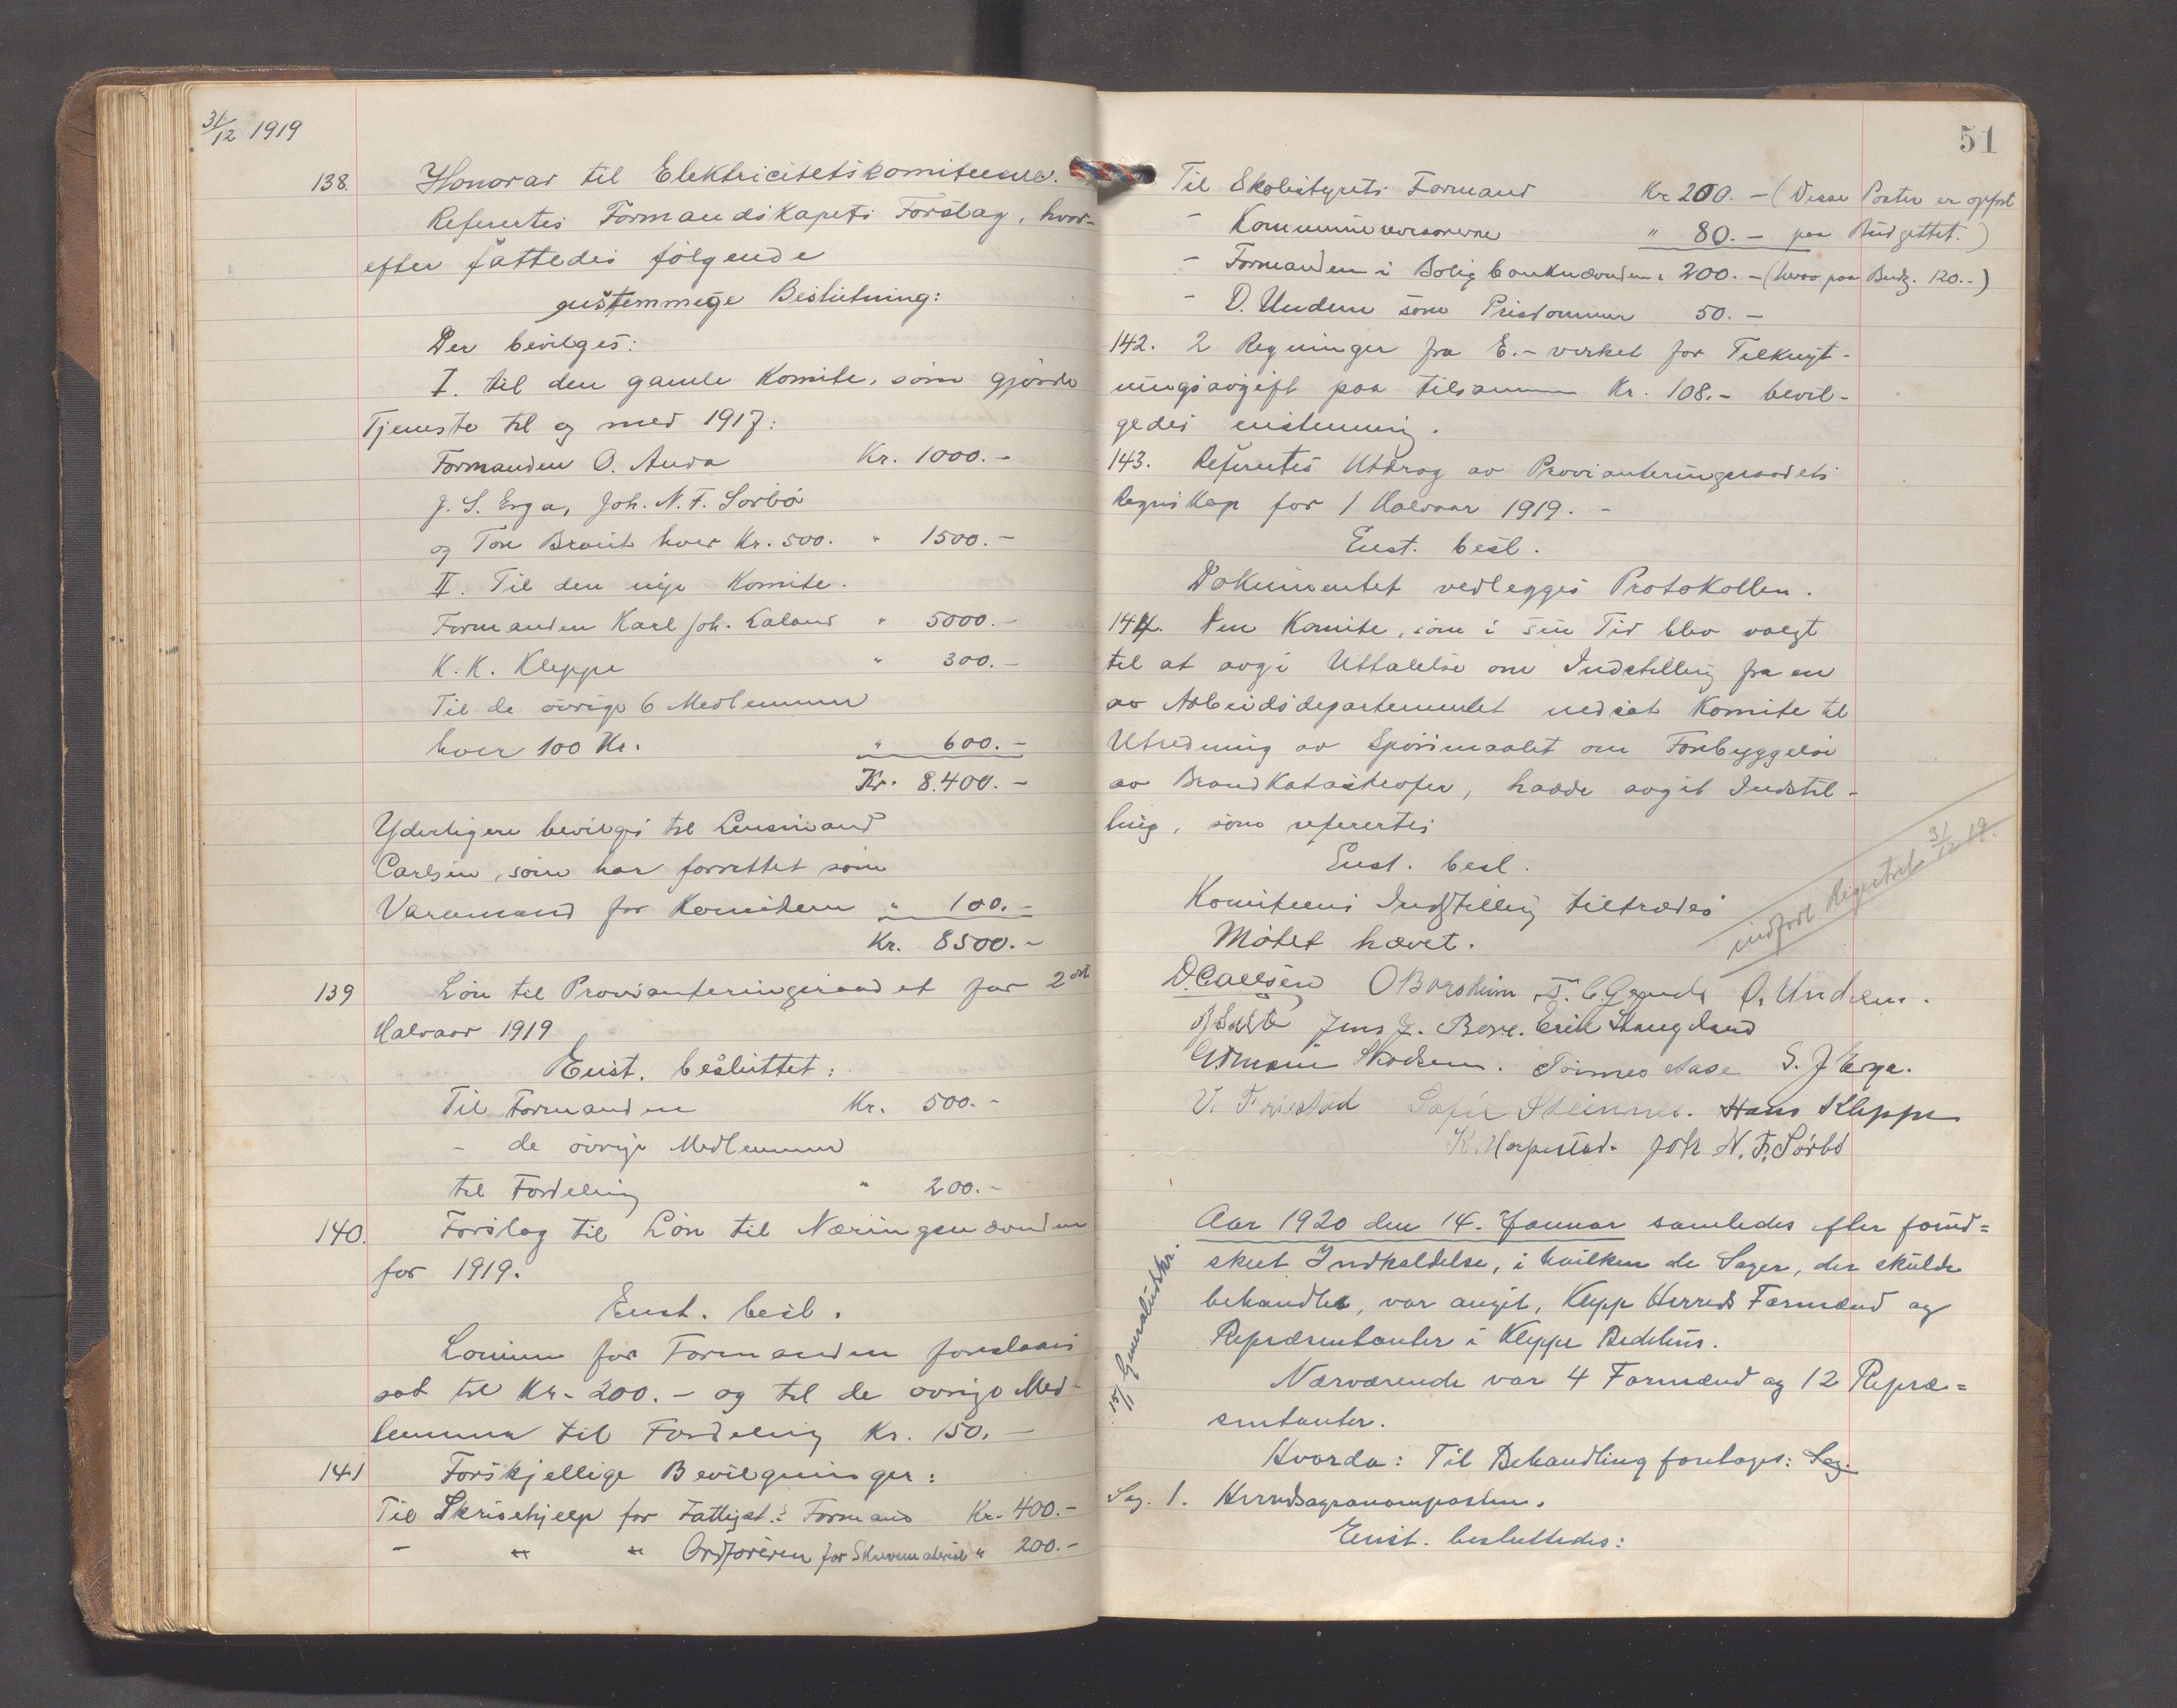 31/12 1919
138. Honorar til Elektricitetskomiteene.
Refertes Formandskapets Forslag, hvor-
efter fattedes følgende
enstemmige Beslutning:
Der bevilges:
I. til den gamle Komite, som gjorde
Tjeneste til og med 1917:
Formanden O. Anda Kr. 1000.-
J. S. Erga, Joh. N. F. Sørbø
og Tore Braut hver Kr. 500. " 1500.-
II. Til den nye Komite.
Formanden Karl Joh. Laland " 5000.-
K. K. Kleppe " 300.-
Til de øvrige 6 Medlemmer
hver 100 Kr. " 600.-
Kr. 8.400.-
Yderligere bevilges til Lensmand
Carlsen, som har forrettet som
Varamand for Komiteen " 100.-
Kr. 8500.-
139 Løn til Provianteringsraadet for 2det
Halvaar 1919
Enst. besluttet:
Til Formanden Kr. 500.-
- de øvrige Medlemmer
til Fordeling " 200.-
140. Forslag til Løn til Næringsnævnden
for 1919.
Enst. besl.
Lønnen for Formanden foreslaaes
sat til Kr. 200.- og til de øvrige Med-
lemmer til Fordeling Kr. 150.-
141 Forskjellige Bevilgninger:
Til Skrivehjelp for Fattigst.s Formand Kr. 400.-
- " " Ordføreren for Skrivemateriel " 200.-
51
Til Skolestyrets Formand Kr 200.- (Disse Poster er opført
- Kommunerevisorerne " 80.- paa Budgettet.)
- Formanden i Boligbanknævnden " 200.- (hvoro paa Budg. 120.-)
- O. Undem som Prisdommer 50.-
142. 2 Regninger fra E.-verket for Tilknyt-
ningsavgift paa tilsammen Kr. 108.- bevil-
gedes enstemmig.
143. Refertes Utdrag av Provianteringsraadets
Regnskap for 1 Halvaar 1919.-
Enst. besl.
Dokumentet vedlegges Protokollen.
144. Den Komite, som i sin Tid blev valgt
til at avgi Uttalelse om Indstilling fra en
av Arbeidsdepartementet nedsat Komite til
Utredning av Spørsmaalet om Forebyggelse
av Brandkatastrofer, hadde avgit Indstil-
ling, som refertes
Enst. besl.
Komiteens Indstilling tiltrædes
indført Registret 31/12 19.
Møtet hævet.
D. Carlsen O Borsheim T. C. O. Undem.
Jens J. Bore. Erik Haugland
Skadsem. Tørres Aase S. J Erga.
V. Friestad Sofie Steinnes. Hans Kleppe
K. Horpestad. Joh N. F. Sørbø
Aar 1920 den 14. Januar samledes efter forud=
skeet Indkaldelse, i hvilken de Sager, der skulde
behandles, var angit, Klepp Herreds Formænd og
Repræsentanter i Kleppe Bedehus.
15/1 Generalutskr.
Nærværende var 4 Formænd og 12 Repræ=
sentanter.
Hvorda: Til Behandling foretages: Sag.
Sag. 1. Herredsagronomposten.
Enst. besluttedes: